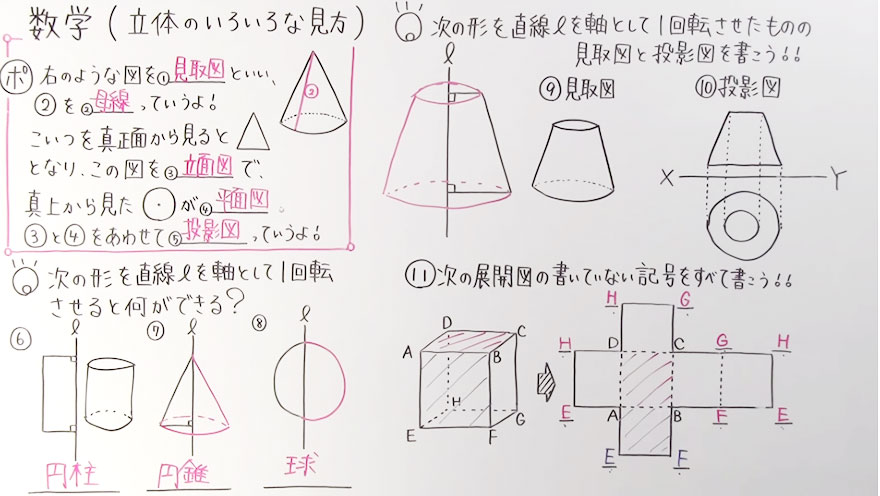 数学(立体のいろいろな見方)
ポ 右のような図を①見取図といい、
②を②母線っていうよ!
②
こいつを真正面から見ると
となり、この図を③立面図で、
真上から見た が④平面図。
③と④をあわせて⑤投影図っていうよ!
次の形を直線ℓを軸として1回転
させると何ができる?
⑥ ℓ ⑦ ℓ ⑧ ℓ
円柱 円錐 球
次の形を直線ℓを軸として1回転させたものの
見取図と投影図を書こう!!
ℓ
⑨見取図 ⑩投影図
X Y
⑪次の展開図の書いていない記号をすべて書こう!!
D C
A B
H G
E F
H G
H D C G H
E A B F E
E F